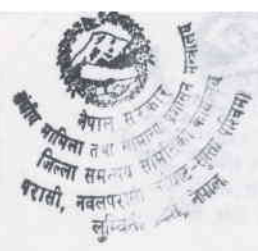 नेपाल सरकार
संघीय मामिला तथा सामान्य प्रशासन मन्त्रालय
जिल्ला समन्वय समितिको कार्यालय
परासी, नवलपरासी (बर्दघाट-सुस्ता पश्चिम)
लुम्बिनी नेपाल